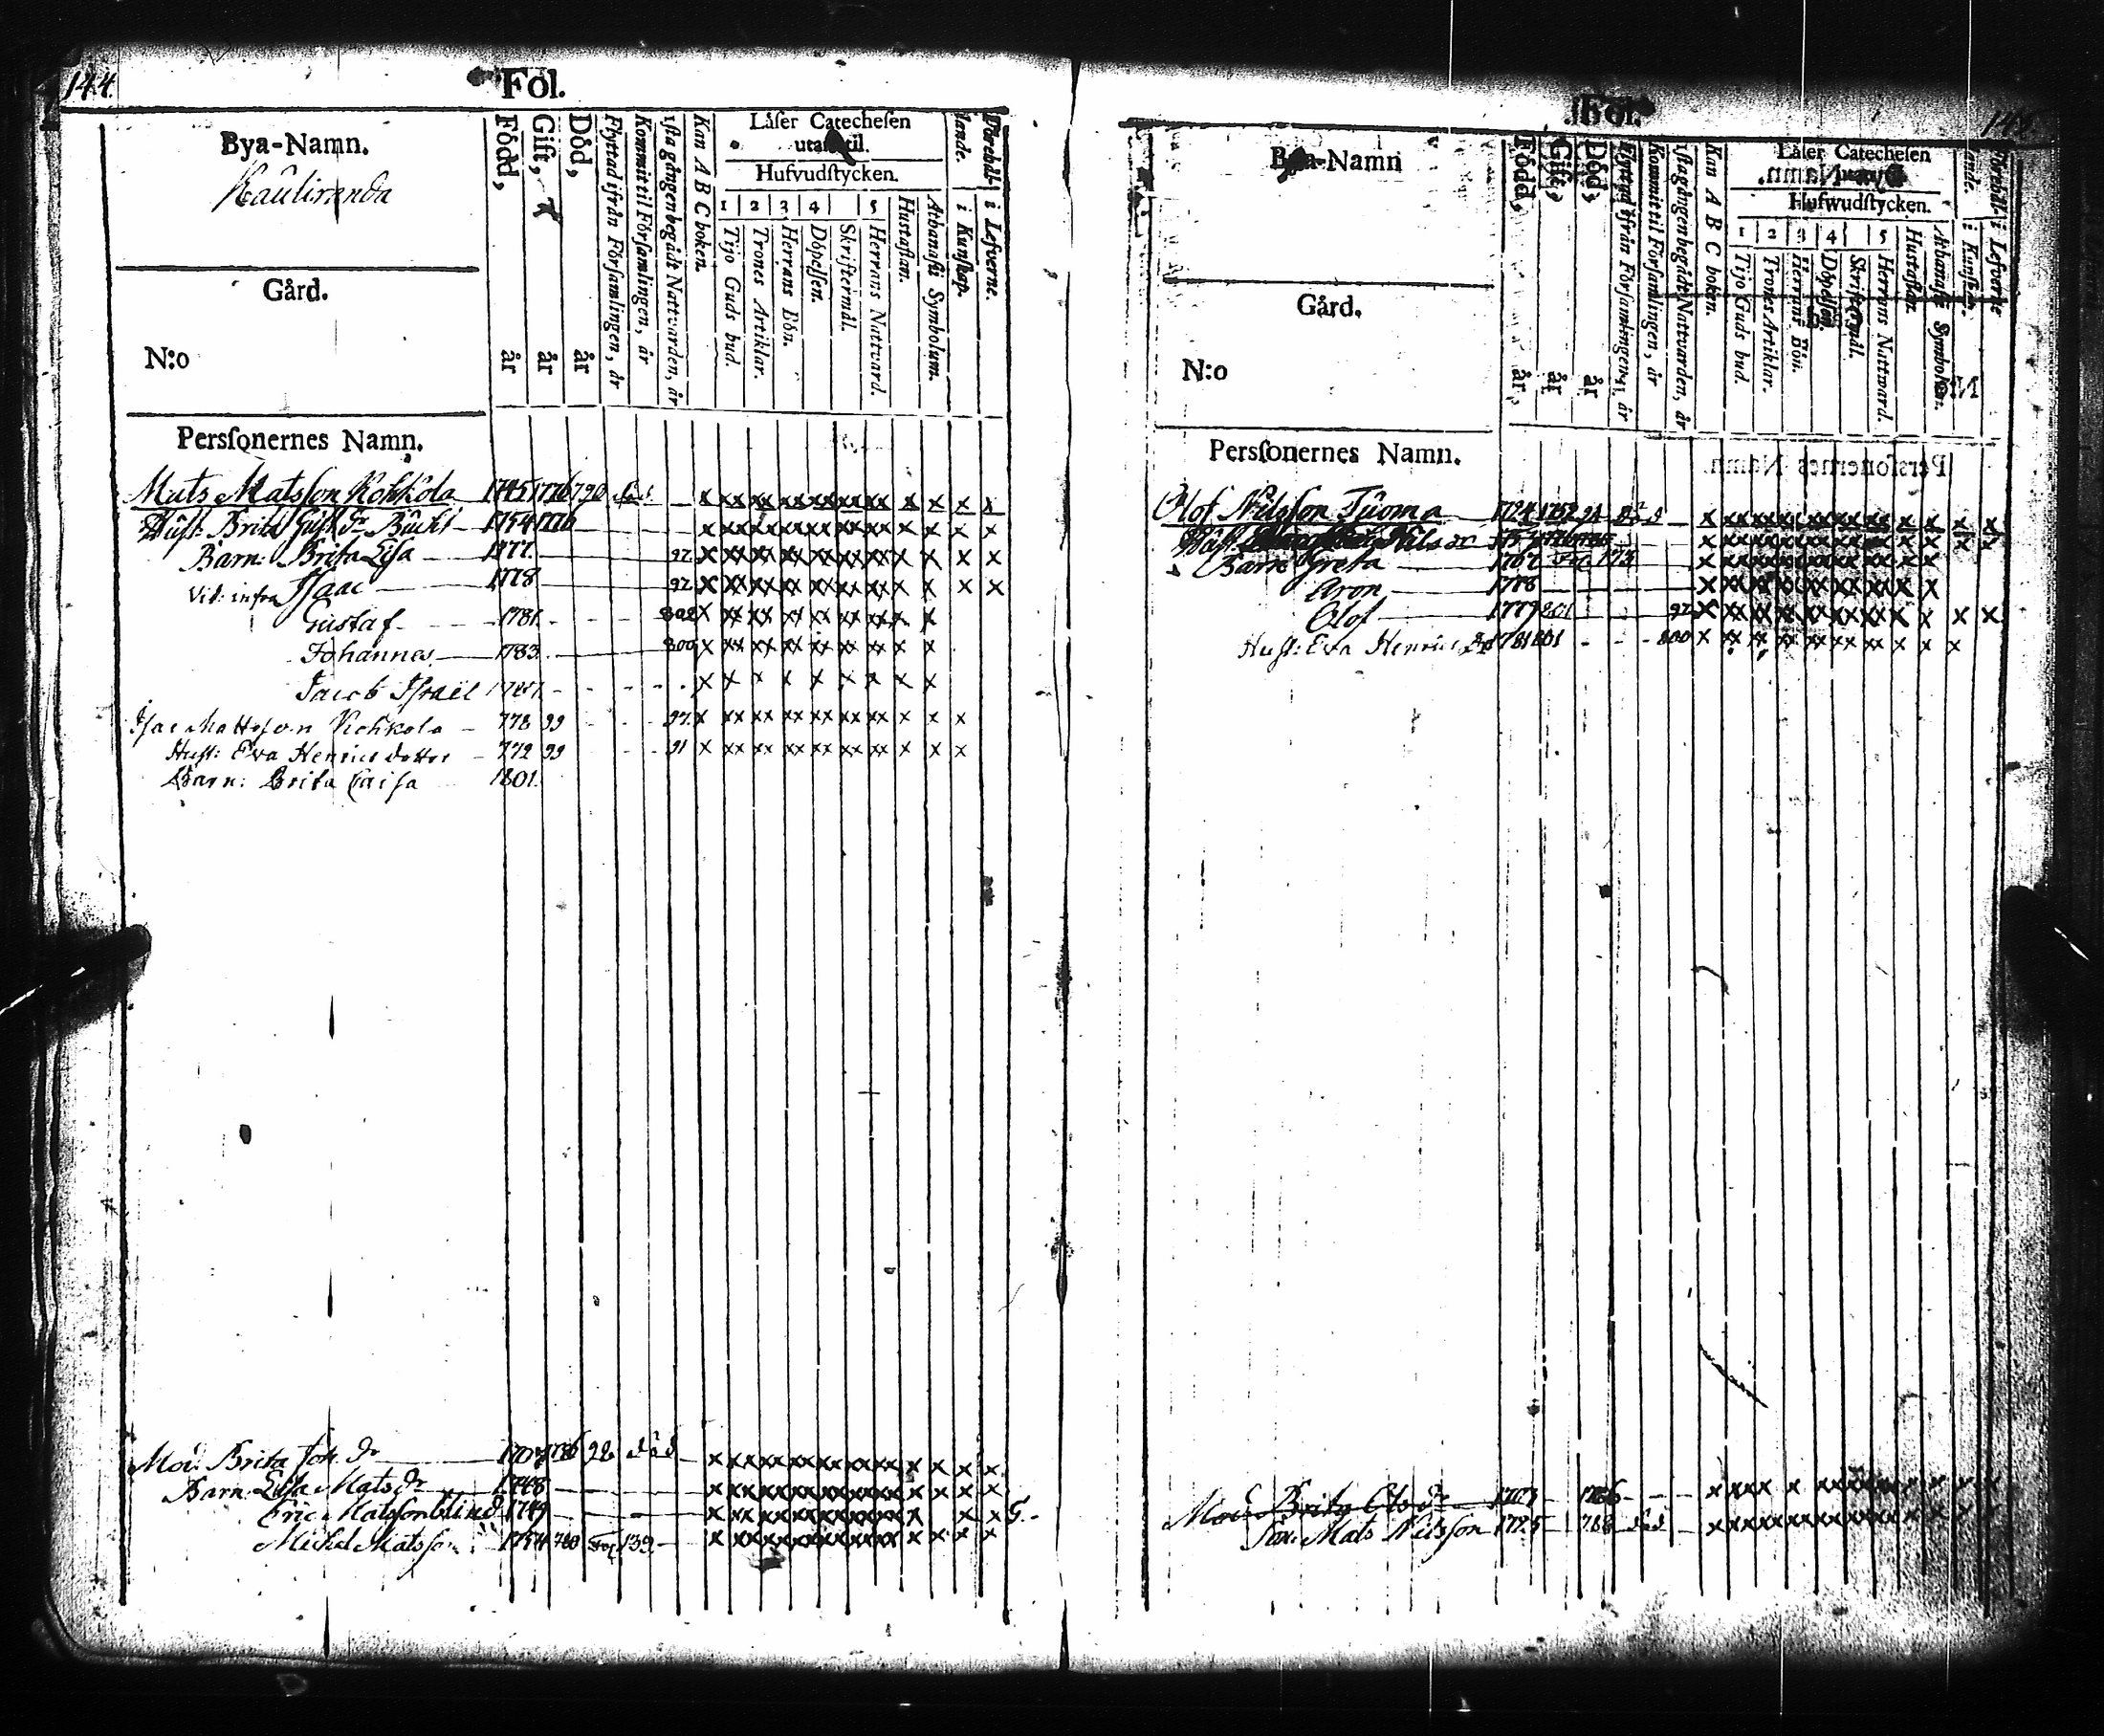 144.
Fol.
Bya-Namn.
Kauliranda
Gård.
N:o
Född, år
Gift, år
Död, år
Flyttad ifrån Församlingen, år
Kommit til Församlingen, år
1sta gången begådt Nattvarden, år
Kan A B C boken.
Låser Catechesen
utan til.
Hufvudstycken.
1 2 3 4 5
Tijo Guds bud.
Trones Artiklar.
Herrans Bön.
Döpelsen.
Skriftermål.
Herrans Nattvard.
Hustaflan.
Athanasii Symbolum.
i Kunskap.
i Lefverne.
Personernes Namn.
Mats Matsson Kohkola 1745 1776 790 död
Hust. Brita Gust. dr 1754 1776
Barn: Brita Lisa 1777 92
Vid: infra Isaac 1778 92
Gustaf 1781 802
Johannes 1783 800
Jacob Israël 1787
Isac Mattsson Kohkola 778 99 97
Hust: Eva Henrics dotter 772 99 91
Barn: Brita Caisa 1801.
Mod. Brita Joh. dr 92 död
Barn Lisa Mats dr 1748
Eric Matsson blind 1749 G.
Michel Matsson 1754 780 Fol. 139.
Fol.
Bya-Namn
Gård.
N:o
Född, år
Gift, år
Död, år
Flyttad ifrån Församlingen, år
Kommit til Församlingen, år
1sta gången begådt Nattvarden, år
Kan A B C boken.
Låser Catechesen
Hufwudstycken.
1 2 3 4 5
Tijo Guds bud.
Trones Artiklar.
Herrans Bön.
Döpelsen.
Skriftermål.
Herrans Nattvard.
Hustaflan.
Athanasii Symbolum.
i Kunskap.
i Lefverne
Personernes Namn.
Olof Nilsson Tuoma 1724 1752 91 död
Hust. Nils dr
Barn Greta 1767 Fol. 173
Aron 1778
Olof 1779 801 92
Hust: Eva Henrics dr 1781 801 800
Mod. Brita Ols dr
Son. Mats Nilsson 1725 788 död